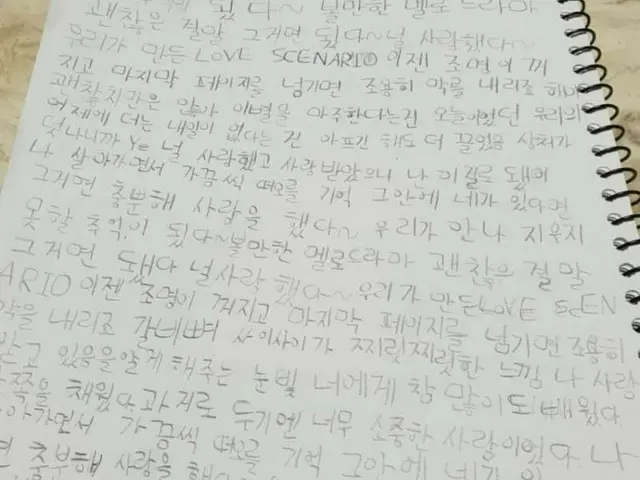 됐다~ 볼만한 멜로드라마
괜찮은 결말 그거면 됐다~널 사랑했다~
우리가 만든 LOVE SCENARIO 이젠 조명이 꺼
지고 마지막 페이지를 넘기면 조용히 막를 내리조
괜찮치만은 않아 이별을 마주한다는건 오늘이었던 우리의
어제에 더는 내일이 없다는 건 아프긴 해도 더 끌었음 상처가
덧나니까 Ye 널 사랑했고 사랑 받았으니 난 이걸로 됐어
나 살아가면서 가끔씩 떠오를 기억 그안에 네가 있다면
그거면 충분해 사랑을 했다~ 우리가 만나 지우지
못할 추억이 됐다~볼만한 멜로드라마 괜찮은 결말
그거면 됐다 널사랑했다~우리가 만든LOVE SCEN
ARIO 이젠 조명이 꺼지고 마지막 페이지를 넘기면 조용히
막을 내리조 갈비뼈 사이사이가 찌릿찌릿한 느낌 나 사랑
받고 있음을알게 해주는 눈빛 너에게 참 많이도 배웠다
쪽을 채웠다 과거로 두기엔 너무 소중한 사람이었다 나
살아가면서 가끔씩 떠오를 기억 그아에 네가 있
면 충분해 사랑을 했다